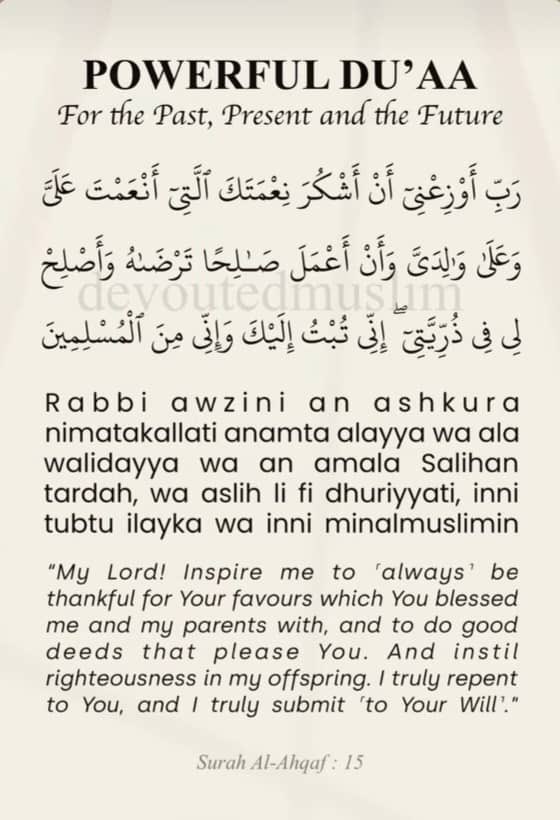 POWERFUL DU’AA
For the Past, Present and the Future
رَبِّ أَوْزِعْنِىٓ أَنْ أَشْكُرَ نِعْمَتَكَ ٱلَّتِىٓ أَنْعَمْتَ عَلَىَّ
وَعَلَىٰ وَٰلِدَىَّ وَأَنْ أَعْمَلَ صَـٰلِحًا تَرْضَىٰهُ وَأَصْلِحْ
devoutedmuslim
لِى فِى ذُرِّيَّتِىٓ ۖ إِنِّى تُبْتُ إِلَيْكَ وَإِنِّى مِنَ ٱلْمُسْلِمِينَ
Rabbi awzini an ashkura
nimatakallati anamta alayya wa ala
walidayya wa an amala Salihan
tardah, wa aslih li fi dhuriyyati, inni
tubtu ilayka wa inni minalmuslimin
“My Lord! Inspire me to ˹always˺ be
thankful for Your favours which You blessed
me and my parents with, and to do good
deeds that please You. And instil
righteousness in my offspring. I truly repent
to You, and I truly submit ˹to Your Will˺.”
Surah Al-Ahqaf : 15